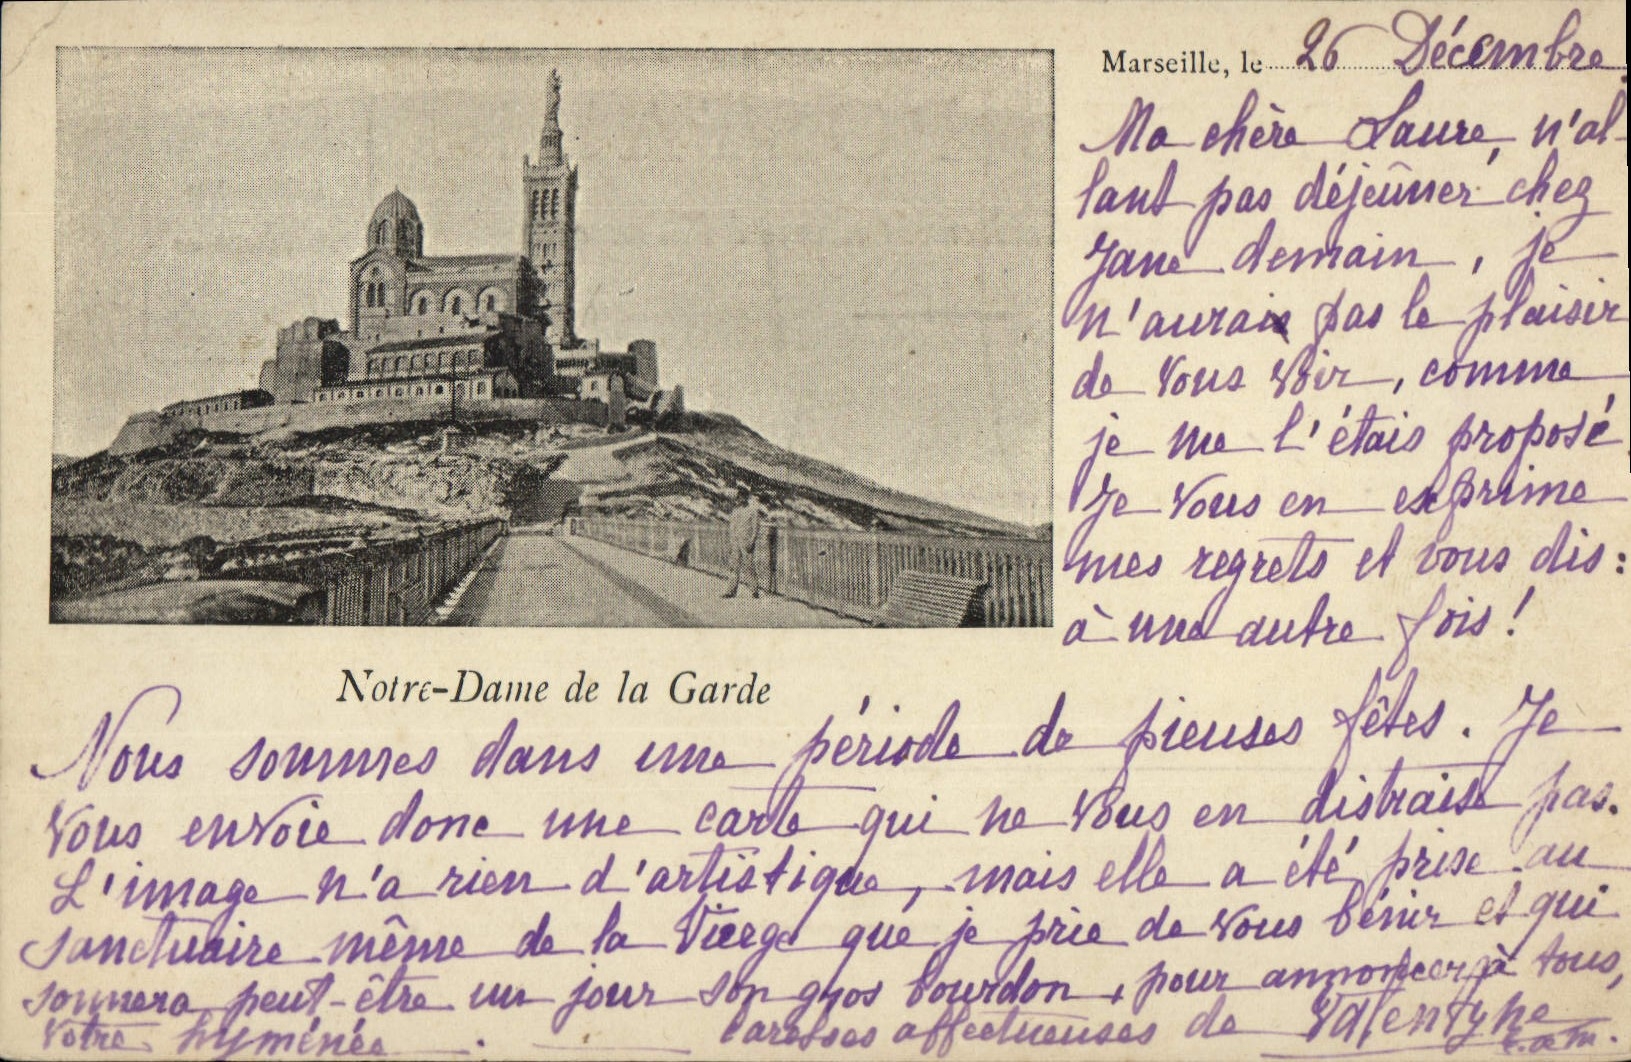 Marseille, le 26 Décembre.
Ma chère Laure, n'al-
lant pas déjeûner chez
Jane demain, je
n'aurais pas le plaisir
de vous voir, comme
je me l'étais proposé
Je vous en exprime
mes regrets et vous dis :
à une autre fois !
Notre-Dame de la Garde
Nous sommes dans une période de pieuses fêtes. Je
vous envoie donc une carte qui ne vous en distraise pas.
L'image n'a rien d'artistique, mais elle a été prise au
sanctuaire même de la Vierge que je prie de vous bénir et qui
sonnera peut-être un jour son gros bourdon, pour annoncer à tous,
votre hyménée. Caresses affectueuses de Valentyne